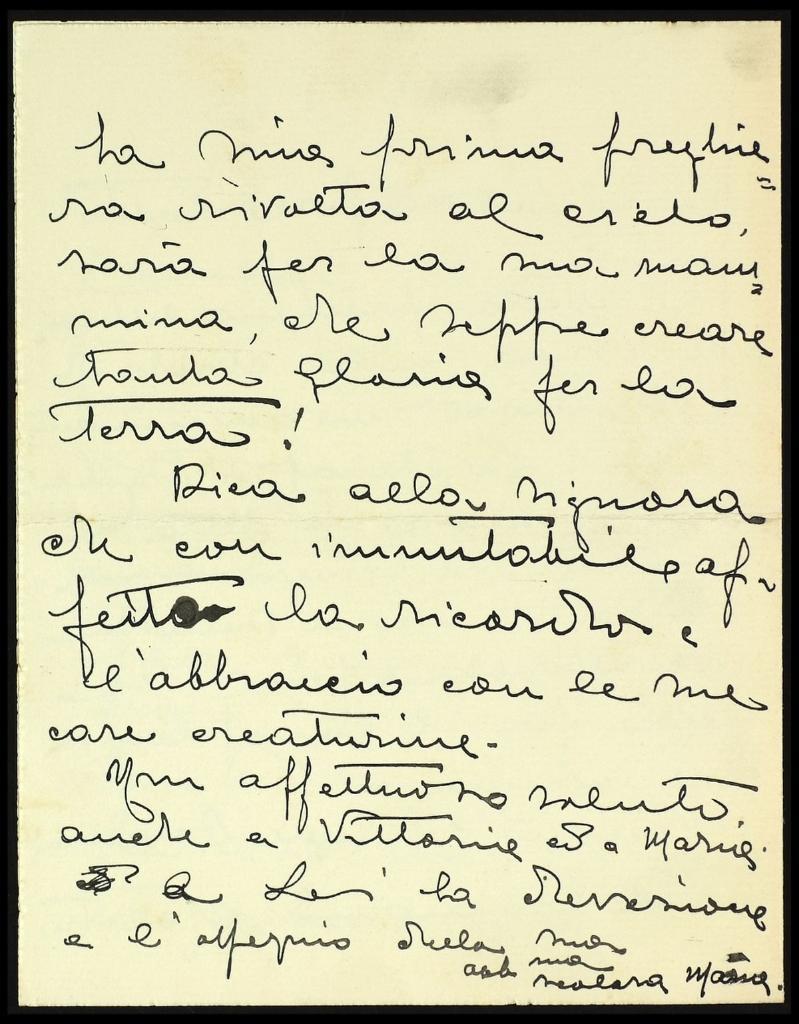 La mia prima preghie=
ra rivolta al cielo,
sarà per la sua mam=
mina, che seppe creare
tanta gloria per la
Terra!
Dica alla signora
che con immutabile af-
fetto la ricordo e
l'abbraccio con le sue
care creaturine.
Un affettuoso saluto
anche a Vittoria ed a Maria.
a Lei la devozione
e l'ossequio della sua
scolara Maria.